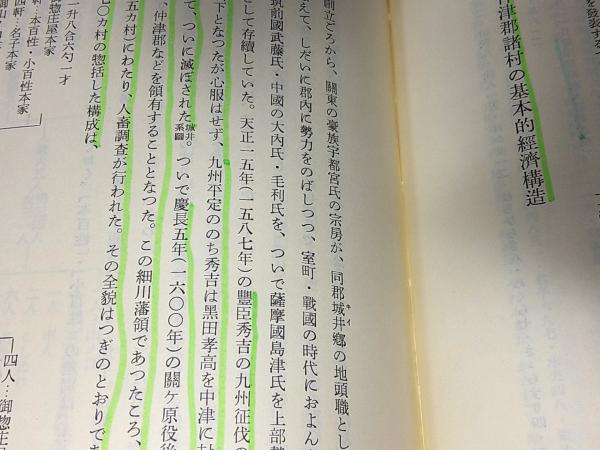 津郡諸村の基本的經濟構造
創立ごろから、關東の豪族宇都宮氏の宗房が、同郡城井郷の地頭職とし
えて、しだいに郡内に勢力をのばしつつ、室町・戰國の時代におよん
筑前國武藤氏・中國の大内氏・毛利氏を、ついで薩摩國島津氏を上部
として存續していた。天正一五年(一五八七年)の豐臣秀吉の九州征伐の
下となつたが心服はせず、九州平定ののち秀吉は黑田孝高を中津に
て、ついに滅ぼされた城井系圖。ついで慶長五年(一六〇〇年)の關ケ原役後
、仲津郡などを領有することとなつた。この細川藩領であつたころ、
五カ村にわたり、人畜調査が行われた。その全貌はつぎのとおりであ
七〇カ村の惣括した構成は、
一升八合六勺一才
惣庄屋本家
四軒…本百姓・小百姓本家
軒…名子本家
四人…御惣庄